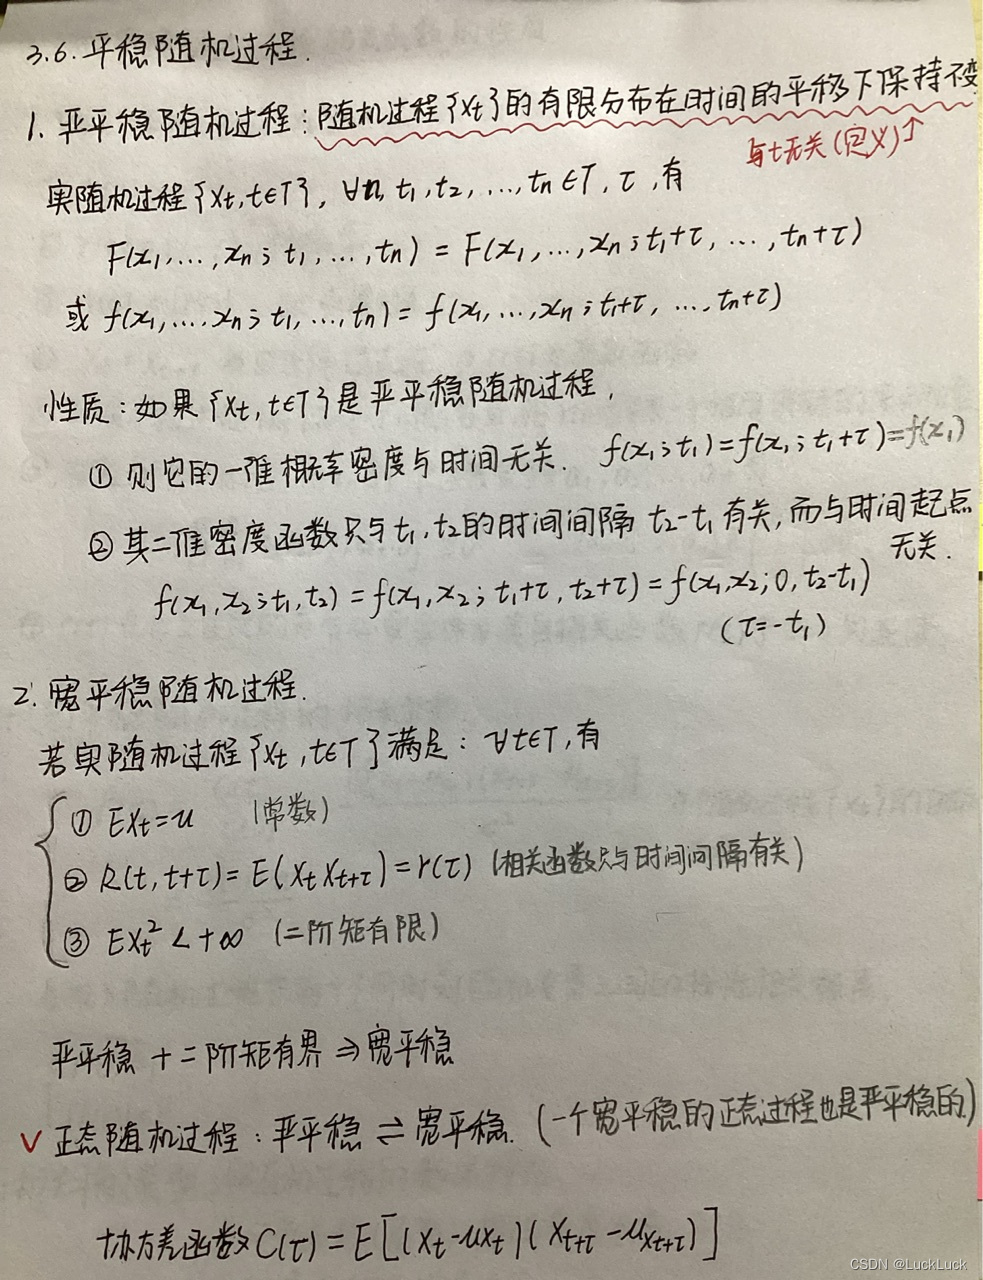 3.6. 平稳随机过程.
1. 严平稳随机过程：随机过程{Xt}的有限分布在时间的平移下保持不变
与t无关(定义)↑
实随机过程{Xt, t∈T}, ∀n, t1, t2, ..., tn∈T, τ, 有
F(x1, ..., xn; t1, ..., tn) = F(x1, ..., xn; t1+τ, ..., tn+τ)
或 f(x1, ..., xn; t1, ..., tn) = f(x1, ..., xn; t1+τ, ..., tn+τ)
性质：如果{Xt, t∈T}是严平稳随机过程,
① 则它的一维概率密度与时间无关. f(x1; t1) = f(x1; t1+τ) = f(x1)
② 其二维密度函数只与t1, t2的时间间隔 t2-t1 有关, 而与时间起点
无关.
f(x1, x2; t1, t2) = f(x1, x2; t1+τ, t2+τ) = f(x1, x2; 0, t2-t1)
(τ=-t1)
2. 宽平稳随机过程.
若实随机过程{Xt, t∈T}满足：∀t∈T, 有
① EXt=u (常数)
② R(t, t+τ) = E(XtXt+τ) = r(τ) (相关函数只与时间间隔有关)
③ EXt² < +∞ (二阶矩有限)
严平稳 + 二阶矩有界 ⇒ 宽平稳
√ 正态随机过程：严平稳 ⇌ 宽平稳. (一个宽平稳的正态过程也是严平稳的.)
协方差函数 C(τ) = E[(Xt-μXt)(Xt+τ-μXt+τ)]
CSDN @LuckLuck